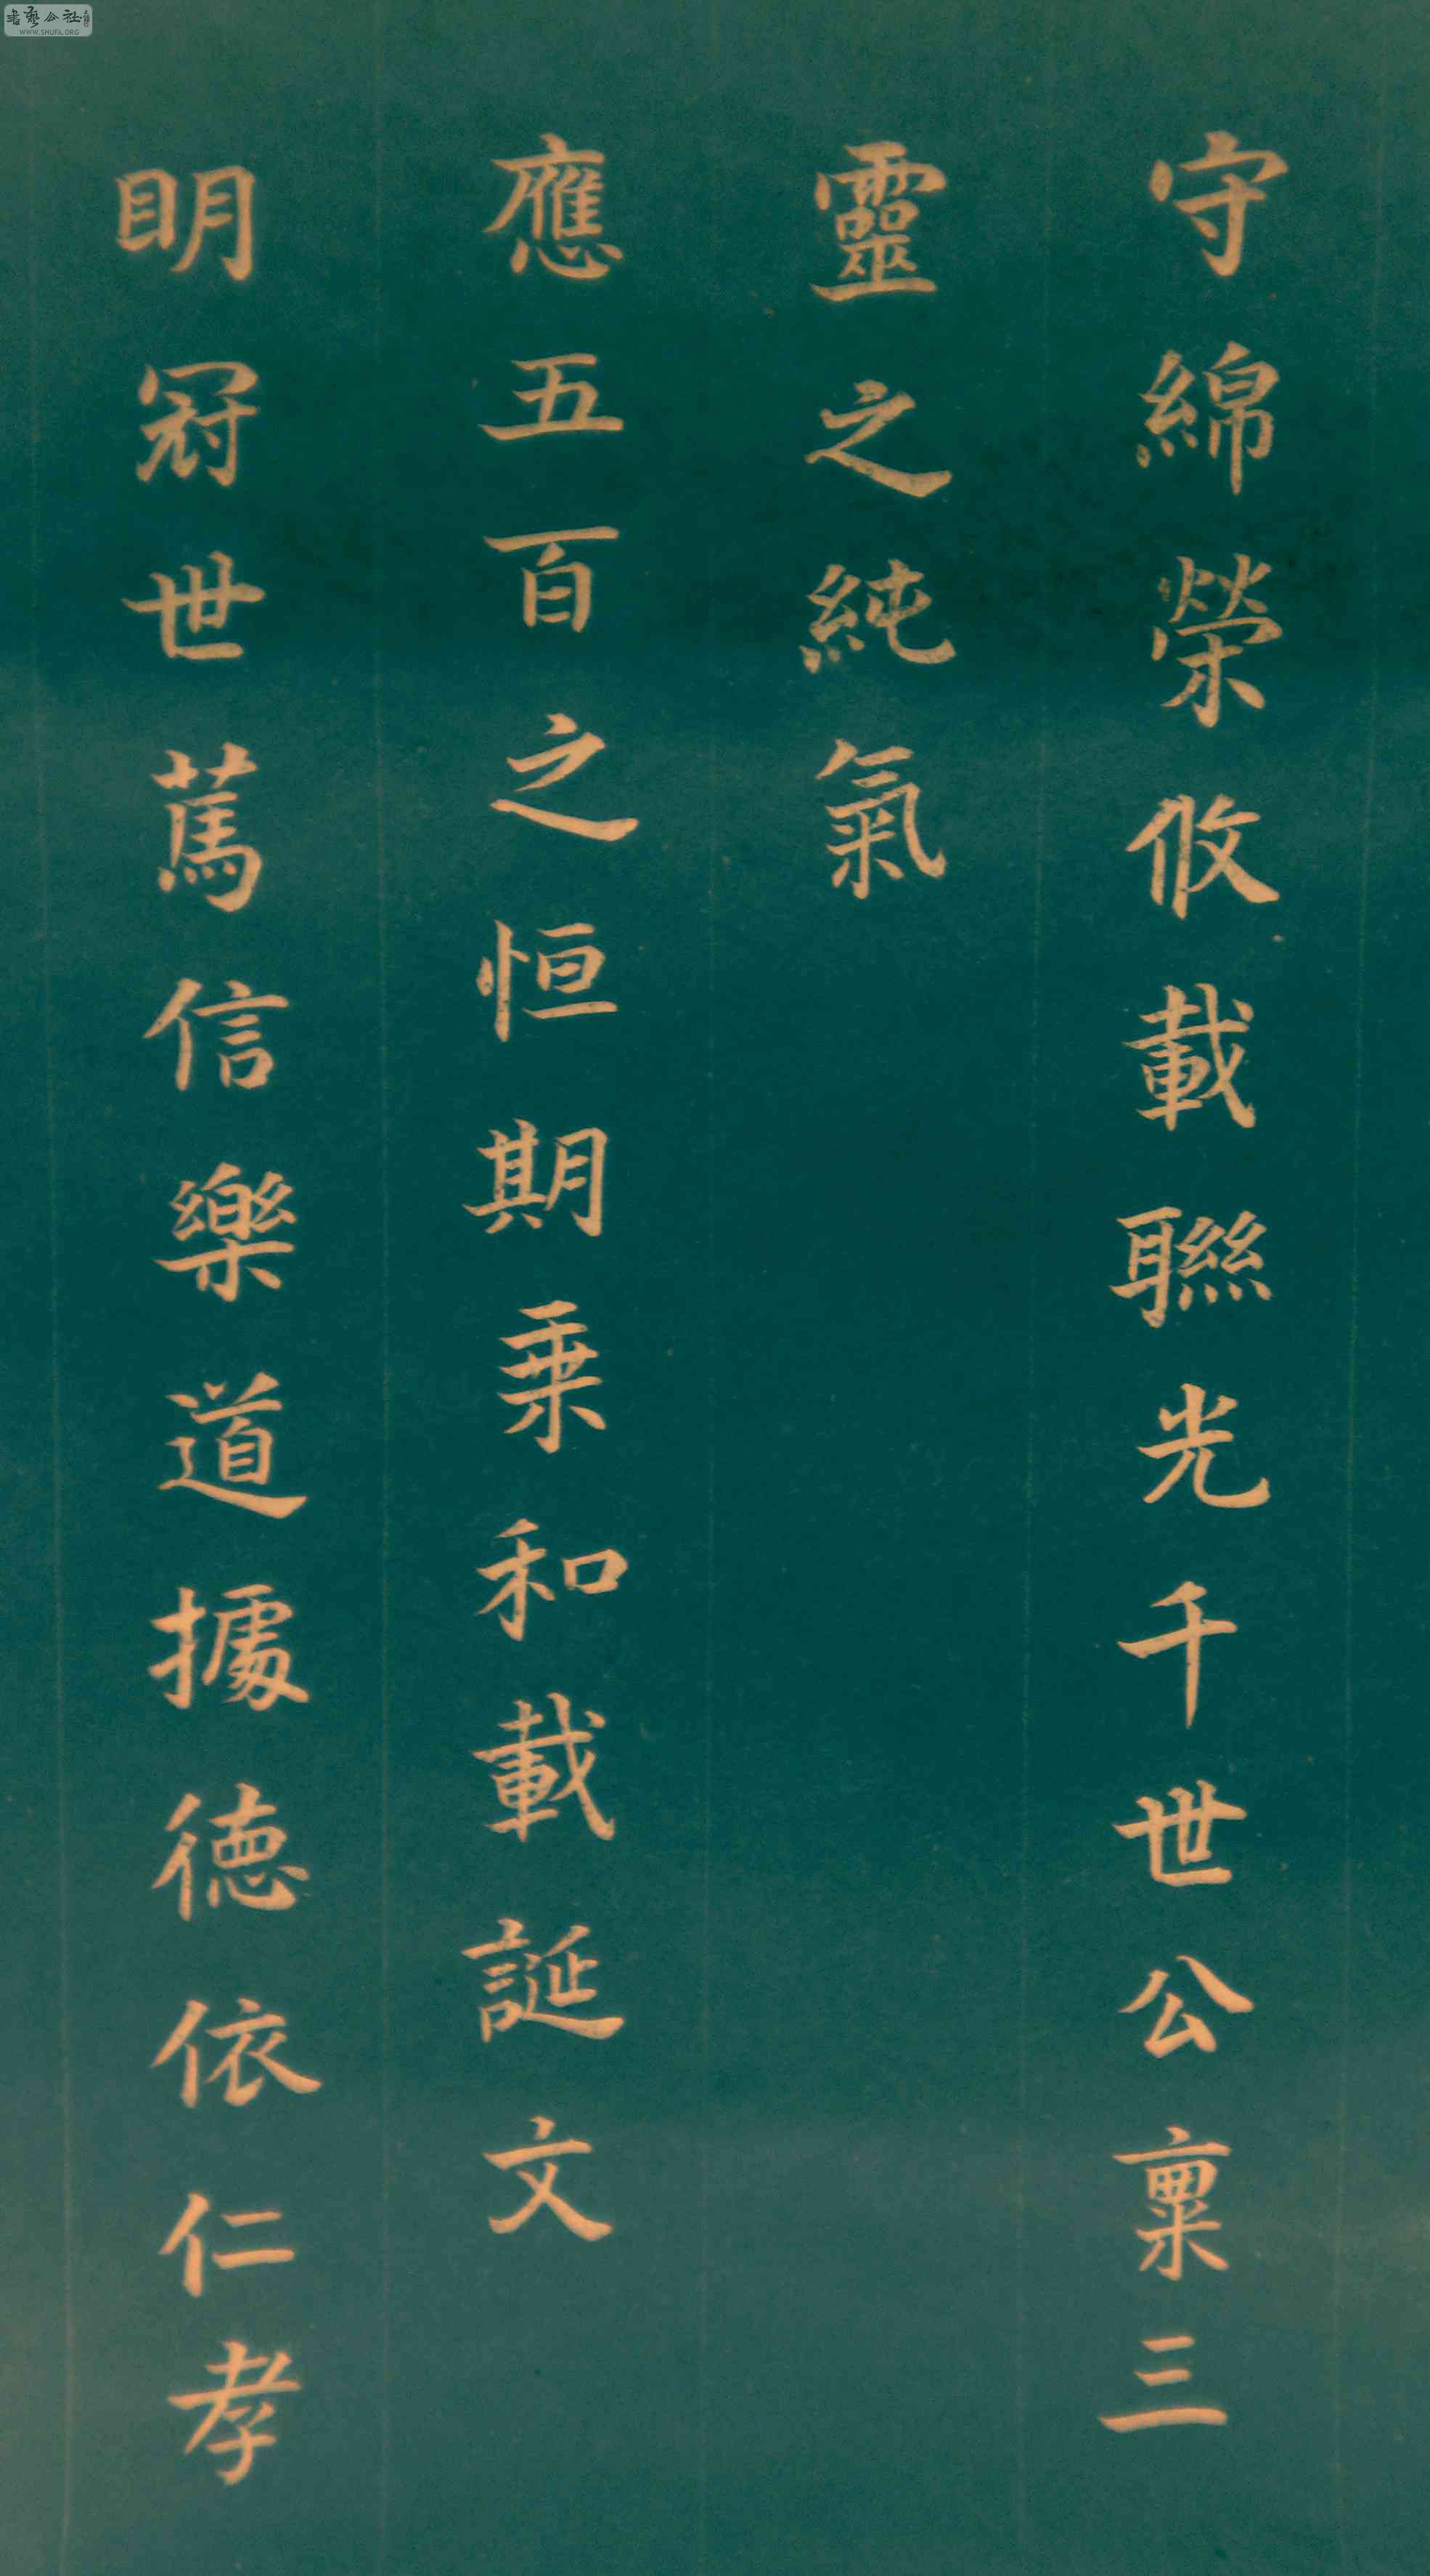 守綿榮攸載聯光千世公稟三
靈之純氣
應五百之恒期乗和載誕文
明冠世篤信樂道據德依仁孝
書藝公社
WWW.SHUFA.ORG